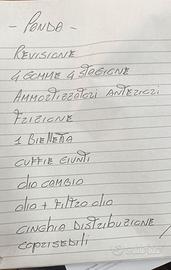 - PANDA -
REVISIONE
4 GOMME 4 STAGIONE
AMMORTIZZATORI ANTERIORI
FRIZIONE
1 BIELLETTA
CUFFIE GIUNTI
OLIO CAMBIO
OLIO + FILTRO OLIO
CINGHIA DISTRIBUZIONE
COPRISEDILI